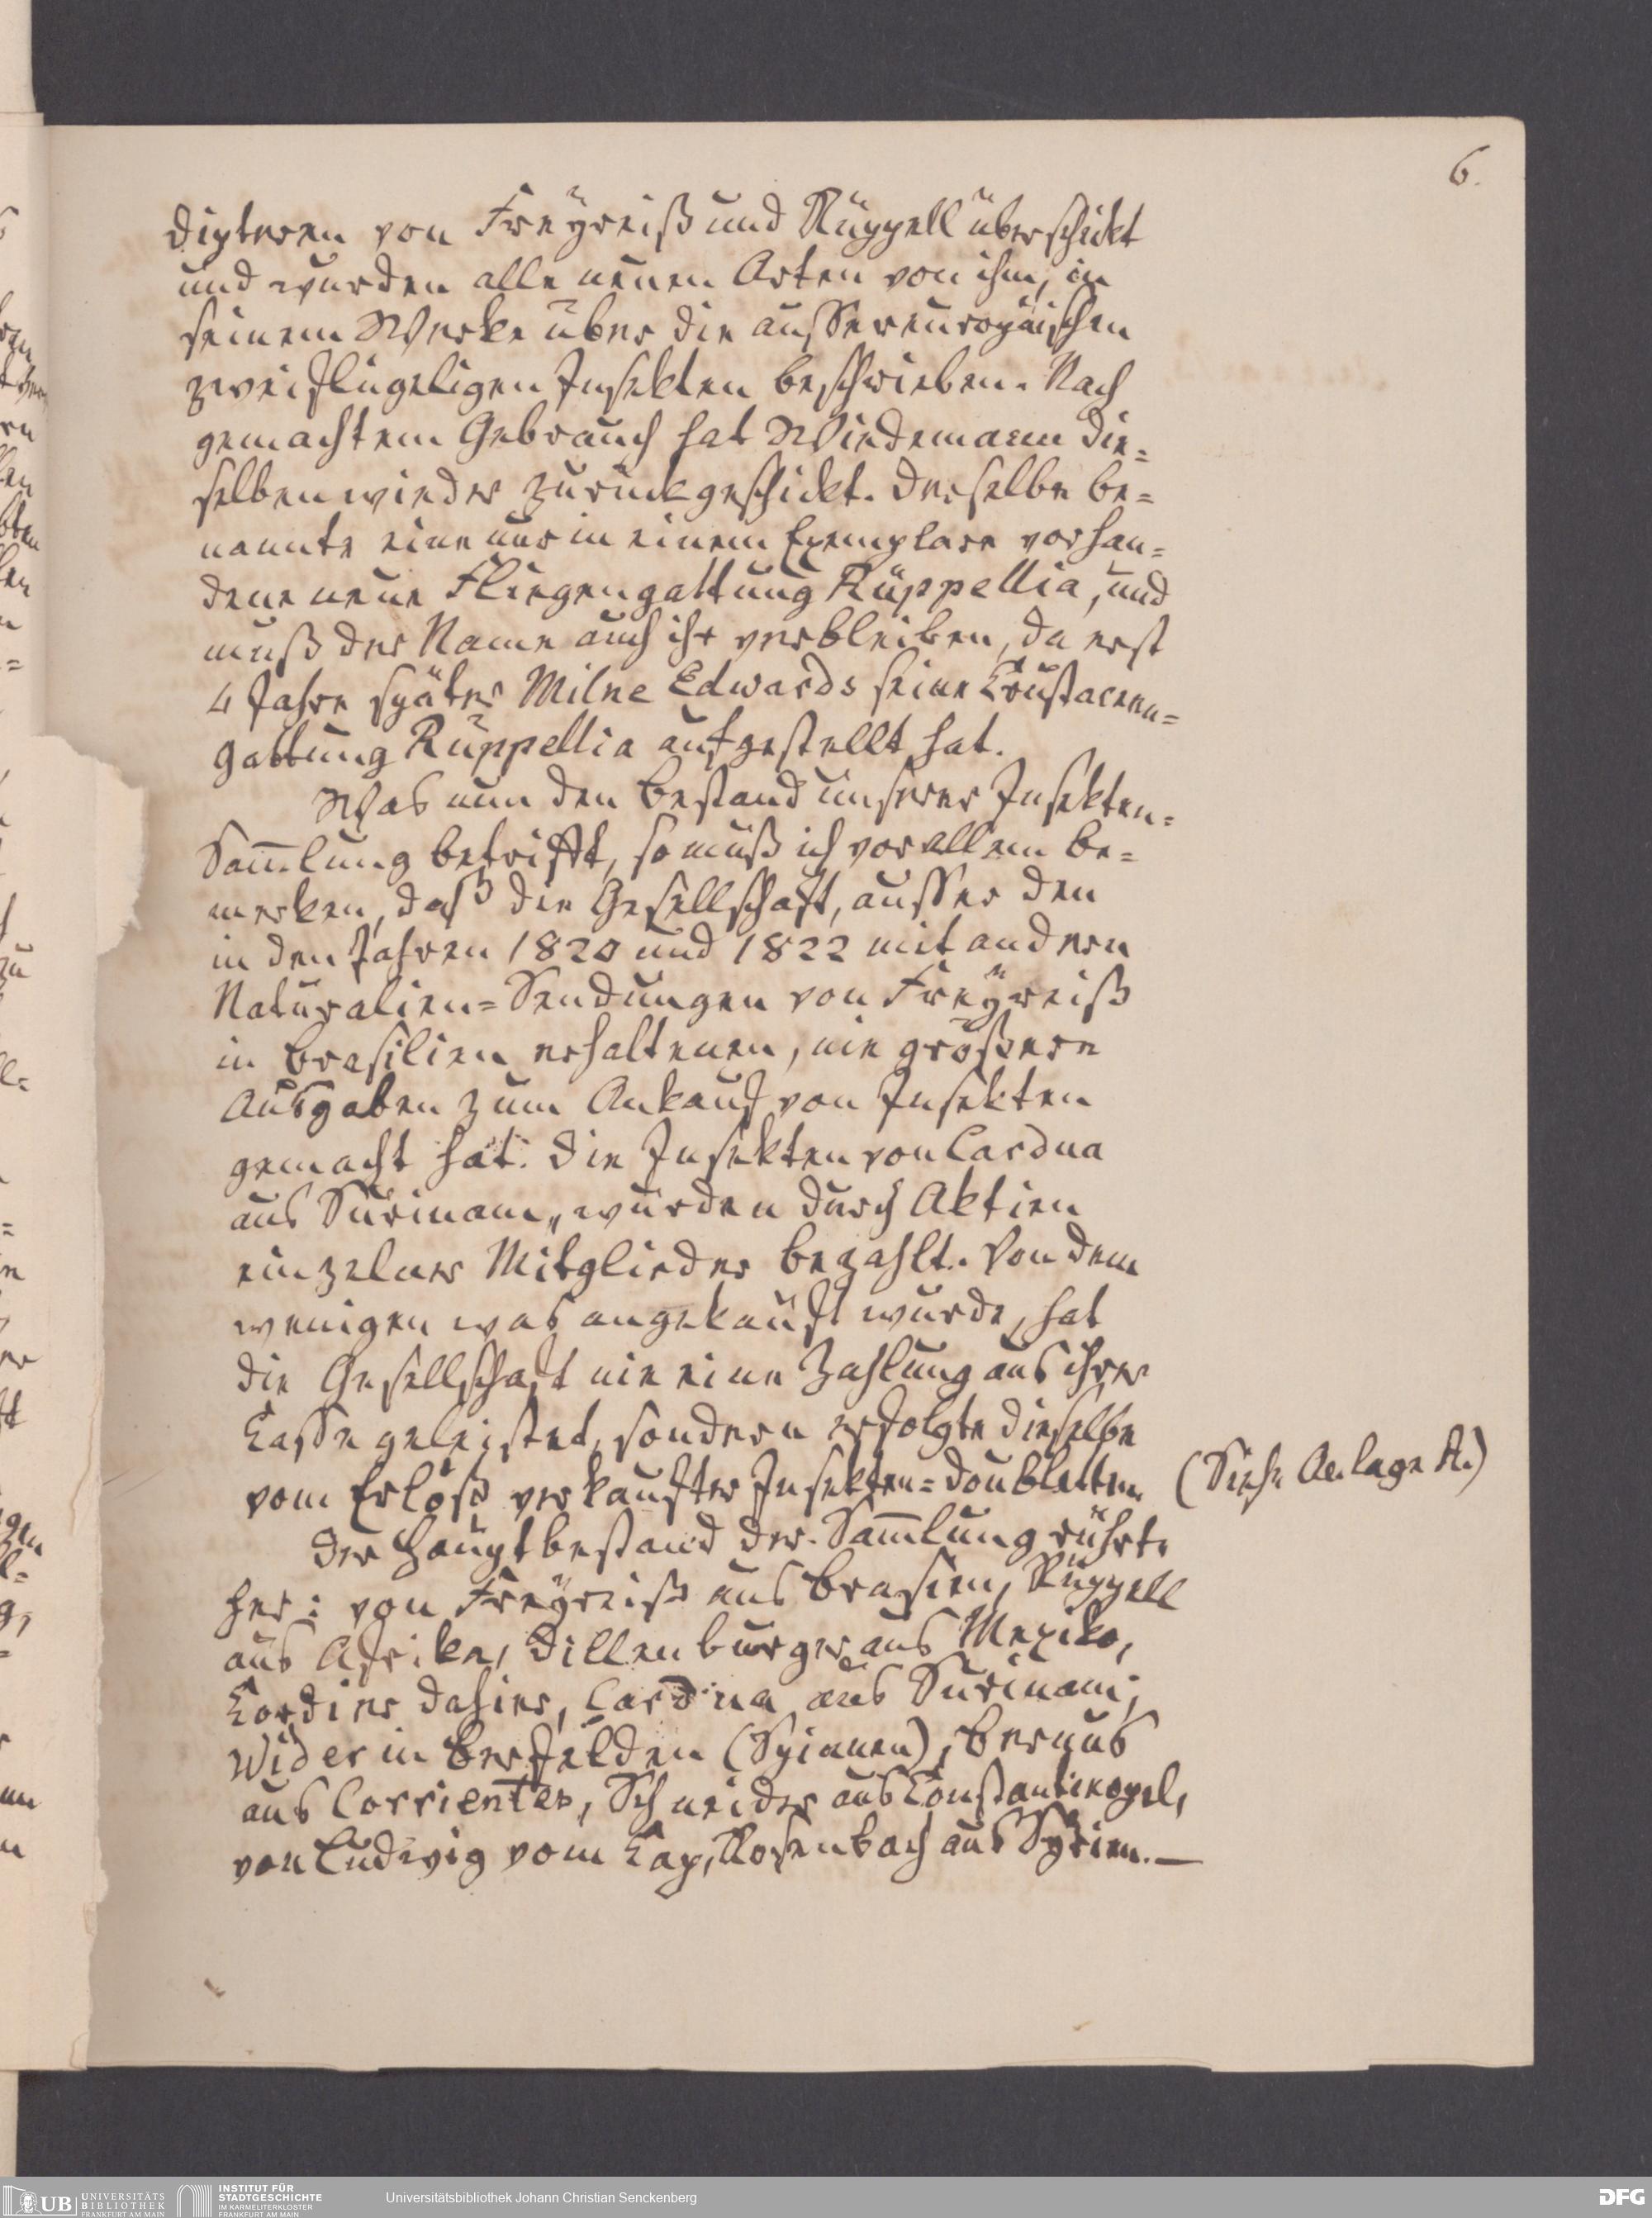 6.
Dipteren von Freÿreiß und Rüppell überschickt
und wurden alle neuen Arten von ihm, in
seinem Werke über die aussereuropäischen
zweiflügeligen Insekten beschrieben. Nach
gemachtem Gebrauch hat Wiedemann die=
selben wieder zurückgeschickt. Derselbe be=
nannte eine nur in einem Exemplare vorhan=
dene neue Fliegengattung Rüppellia, und
muß der Name auch ihr verbleiben, da erst
4 Jahre später Milne Edwards seine Crustaceen=
gattung Rüppellia aufgestellt hat.
Was nun den Bestand unserer Insekten=
Sam̅lung betrifft, so muß ich vor allem be=
merken, daß die Gesellschaft, ausser den
in den Jahren 1820 und 1822 mit andern
Naturalien=Sendungen von Freÿreiß
in Brasilien erhaltenen, nie größere
Ausgaben zum Ankauf von Insekten
gemacht hat. Die Insekten von Cardua
aus Surinam, wurden durch Aktien
einzelner Mitglieder bezahlt. Von dem
wenigen was angekauft wurde, hat
die Gesellschaft nie eine Zahlung aus ihrer
Casse geleistet, sondern erfolgte dieselbe
vom Erlöß verkaufter Insekten=Doubletten. (Siehe Anlage A.)
Der Hauptbestand der Sam̅lung rührt
her: von Freÿreiß aus Brasien, Rüppell
aus Afrika, Dillenburger aus Mexiko,
Cordier dahier, Cardua aus Surinam,
Wider in Berfelden (Spinnen), Bernus
aus Corrientes, Schneider aus Constantinopel,
von Ludwig vom Cap, Rosenbach aus Syrien.—
UB UNIVERSITÄTS
BIBLIOTHEK
FRANKFURT AM MAIN
INSTITUT FÜR
STADTGESCHICHTE
IM KARMELITERKLOSTER
FRANKFURT AM MAIN
Universitätsbibliothek Johann Christian Senckenberg
DFG